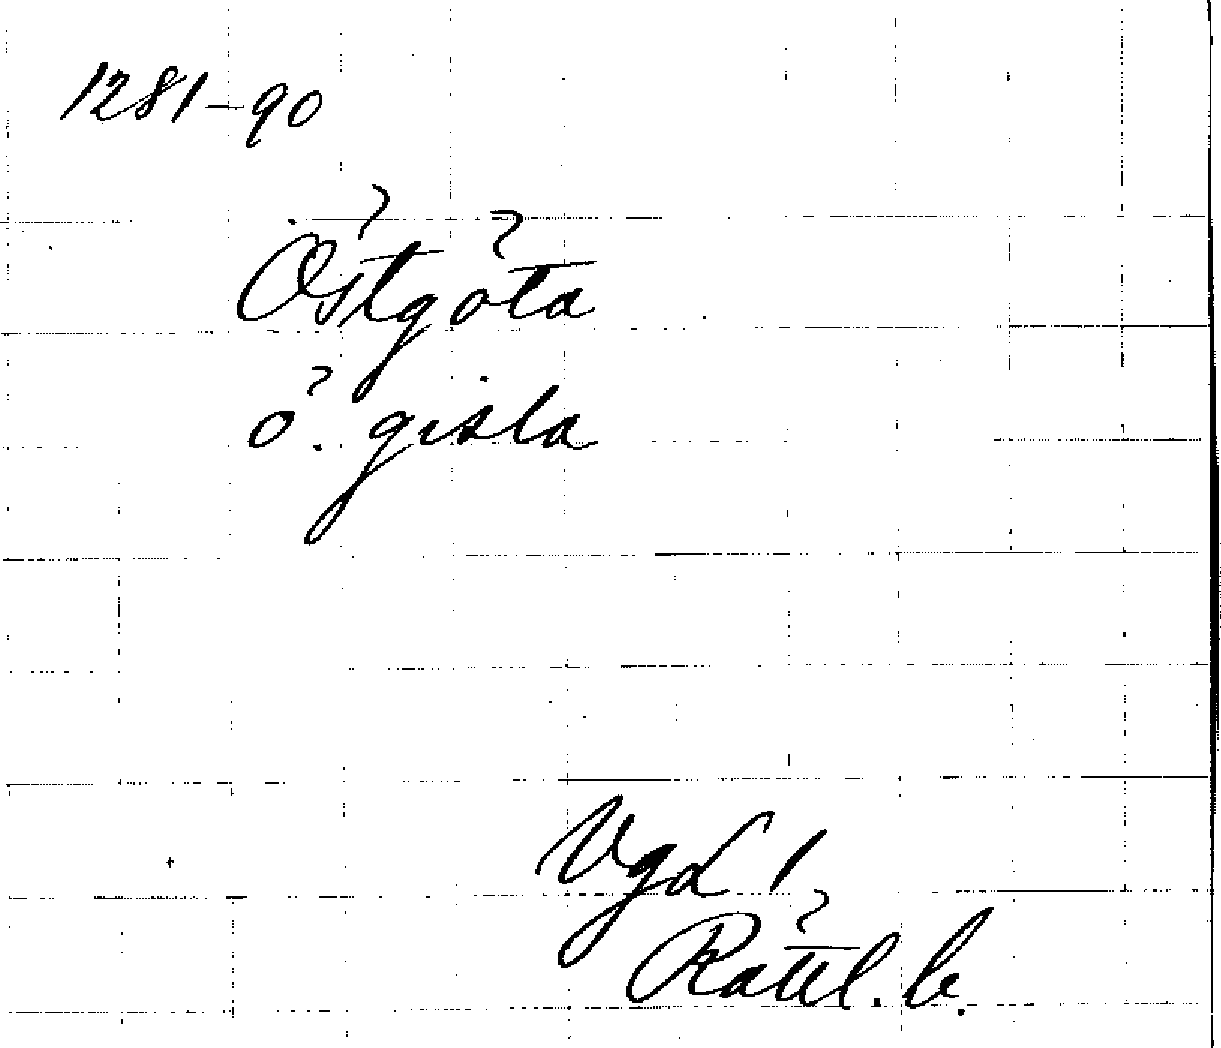 1281-90
Östgöta
ö. gisla
VgL 1,
Rättl. b.